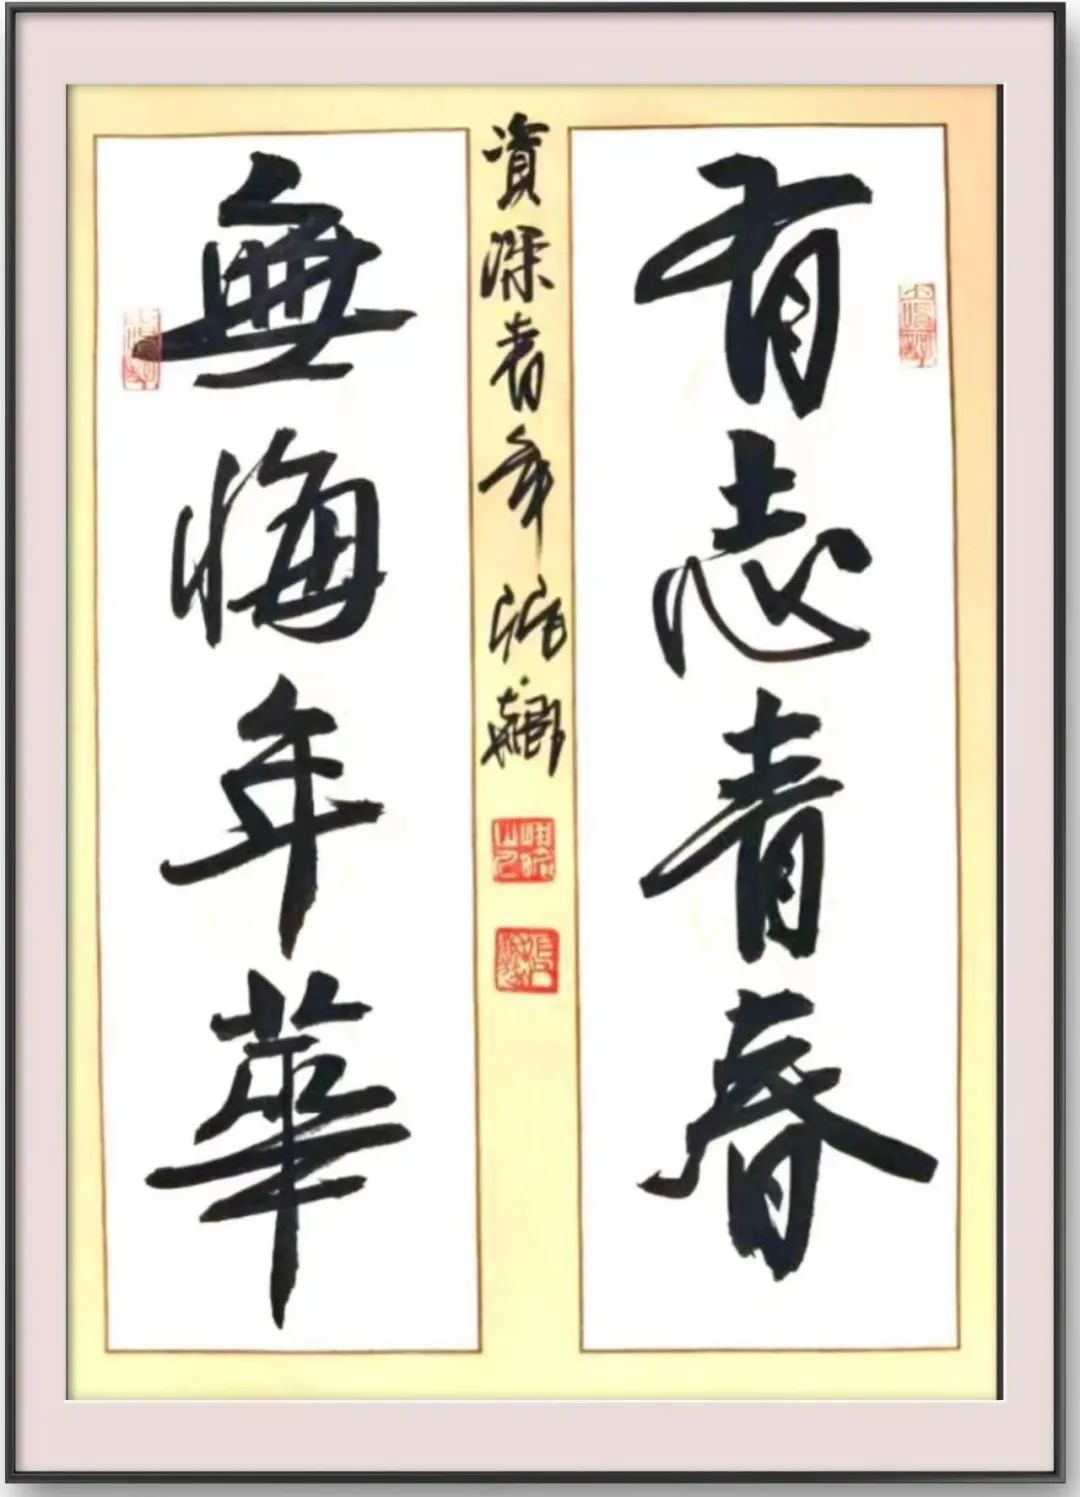 有志青春
資深青年
無悔年華